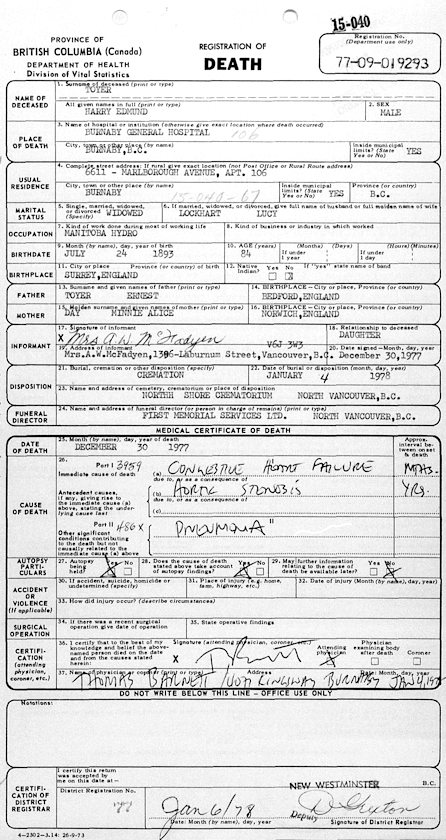 15-040
PROVINCE OF
BRITISH COLUMBIA (Canada)
DEPARTMENT OF HEALTH
Division of Vital Statistics
REGISTRATION OF
DEATH
Registration No.
(Department use only)
77-09-019293
NAME OF DECEASED
1. Surname of deceased (print or type)
TOYER
All given names in full (print or type)
HARRY EDMUND
2. SEX
MALE
PLACE OF DEATH
3. Name of hospital or institution (otherwise give exact location where death occurred)
BURNABY GENERAL HOSPITAL 106
City, town or other place (by name)
BURNABY,B.C.
Inside municipal limits? (State Yes or No) YES
USUAL RESIDENCE
4. Complete street address: If rural give exact location (not Post Office or Rural Route address)
6611 - MARLBOROUGH AVENUE, APT. 106
City, town or other place (by name)
BURNABY
Inside municipal limits? (State Yes or No) YES
Province (or country)
B.C.
MARITAL STATUS
5. Single, married, widowed, or divorced (Specify) WIDOWED
6. If married, widowed, or divorced, give full name of husband or full maiden name of wife
LOCKHART LUCY
OCCUPATION
7. Kind of work done during most of working life
MANITOBA HYDRO
8. Kind of business or industry in which worked
BIRTHDATE
9. Month (by name), day, year of birth
JULY 24 1893
10. AGE (years)
84
(Months) (Days)
If under 1 year
(Hours) (Minutes)
If under 1 day
BIRTHPLACE
11. City or place Province (or country) of birth
SURREY,ENGLAND
12. Native Indian? Yes No
If "yes" state name of band
FATHER
13. Surname and given names of father (print or type)
TOYER ERNEST
14. BIRTHPLACE - City or place, Province (or country)
BEDFORD,ENGLAND
MOTHER
15. Maiden surname and given names of mother (print or type)
DAY MINNIE ALICE
16. BIRTHPLACE - City or place, Province (or country)
NORWICH,ENGLAND
INFORMANT
17. Signature of informant
X Mrs A W McFadyen V6J 3W3
18. Relationship to deceased
DAUGHTER
19. Address of informant
Mrs.A.W.McFadyen,1396-Laburnum Street,Vancouver,B.C.
20. Date signed - Month, day, year
December 30,1977
DISPOSITION
21. Burial, cremation or other disposition (specify)
CREMATION
22. Date of burial or disposition (month, day, year)
JANUARY 4 1978
23. Name and address of cemetery, crematorium or place of disposition
NORTHH SHORE CREMATORIUM NORTH VANCOUVER,B.C.
FUNERAL DIRECTOR
24. Name and address of funeral director (or person in charge of remains) (print or type)
FIRST MEMORIAL SERVICES LTD. NORTH VANCOUVER,B.C.
MEDICAL CERTIFICATE OF DEATH
DATE OF DEATH
25. Month (by name), day, year of death
DECEMBER 30 1977
Approx. interval between onset & death
CAUSE OF DEATH
26. Part I 3959
Immediate cause of death
(a) CONGESTIVE HEART FAILURE MTHS.
due to, or as a consequence of
Antecedent causes, if any, giving rise to the immediate cause (a) above, stating the underlying cause last
(b) AORTIC STENOSIS YRS.
due to, or as a consequence of
(c)
Part II 486X
Other significant conditions contributing to the death but not causally related to the immediate cause (a) above
PNEUMONIA
AUTOPSY PARTICULARS
27. Autopsy being held? Yes No
28. Does the cause of death stated above take account of autopsy findings? Yes No
29. May further information relating to the cause of death be available later? Yes No
ACCIDENT OR VIOLENCE (if applicable)
30. If accident, suicide, homicide or undetermined (specify)
31. Place of injury (e.g. home, farm, highway, etc.)
32. Date of injury (Month (by name), day, year)
33. How did injury occur? (describe circumstances)
SURGICAL OPERATION
34. If there was a recent surgical operation give date of operation
35. State operative findings
CERTIFICATION (attending physician, coroner, etc.)
36. I certify that to the best of my knowledge and belief the above-named person died on the date and from the causes stated herein:
Signature (attending physician, coroner, etc.)
X
Attending physician
Physician examining body after death
Coroner
37. Name of physician or coroner (print or type) Address Date: Month, day, year
THOMAS BARNETT KINGSWAY BURNABY JAN 4, 1978
DO NOT WRITE BELOW THIS LINE - OFFICE USE ONLY
Notations:
CERTIFICATION OF DISTRICT REGISTRAR
I certify this return was accepted by me on this date at -
NEW WESTMINSTER B.C.
District Registration No.
Jan 6/78
Date: Month (by name), day, year
Deputy
Signature of District Registrar
4-2302-3.14: 26-9-73